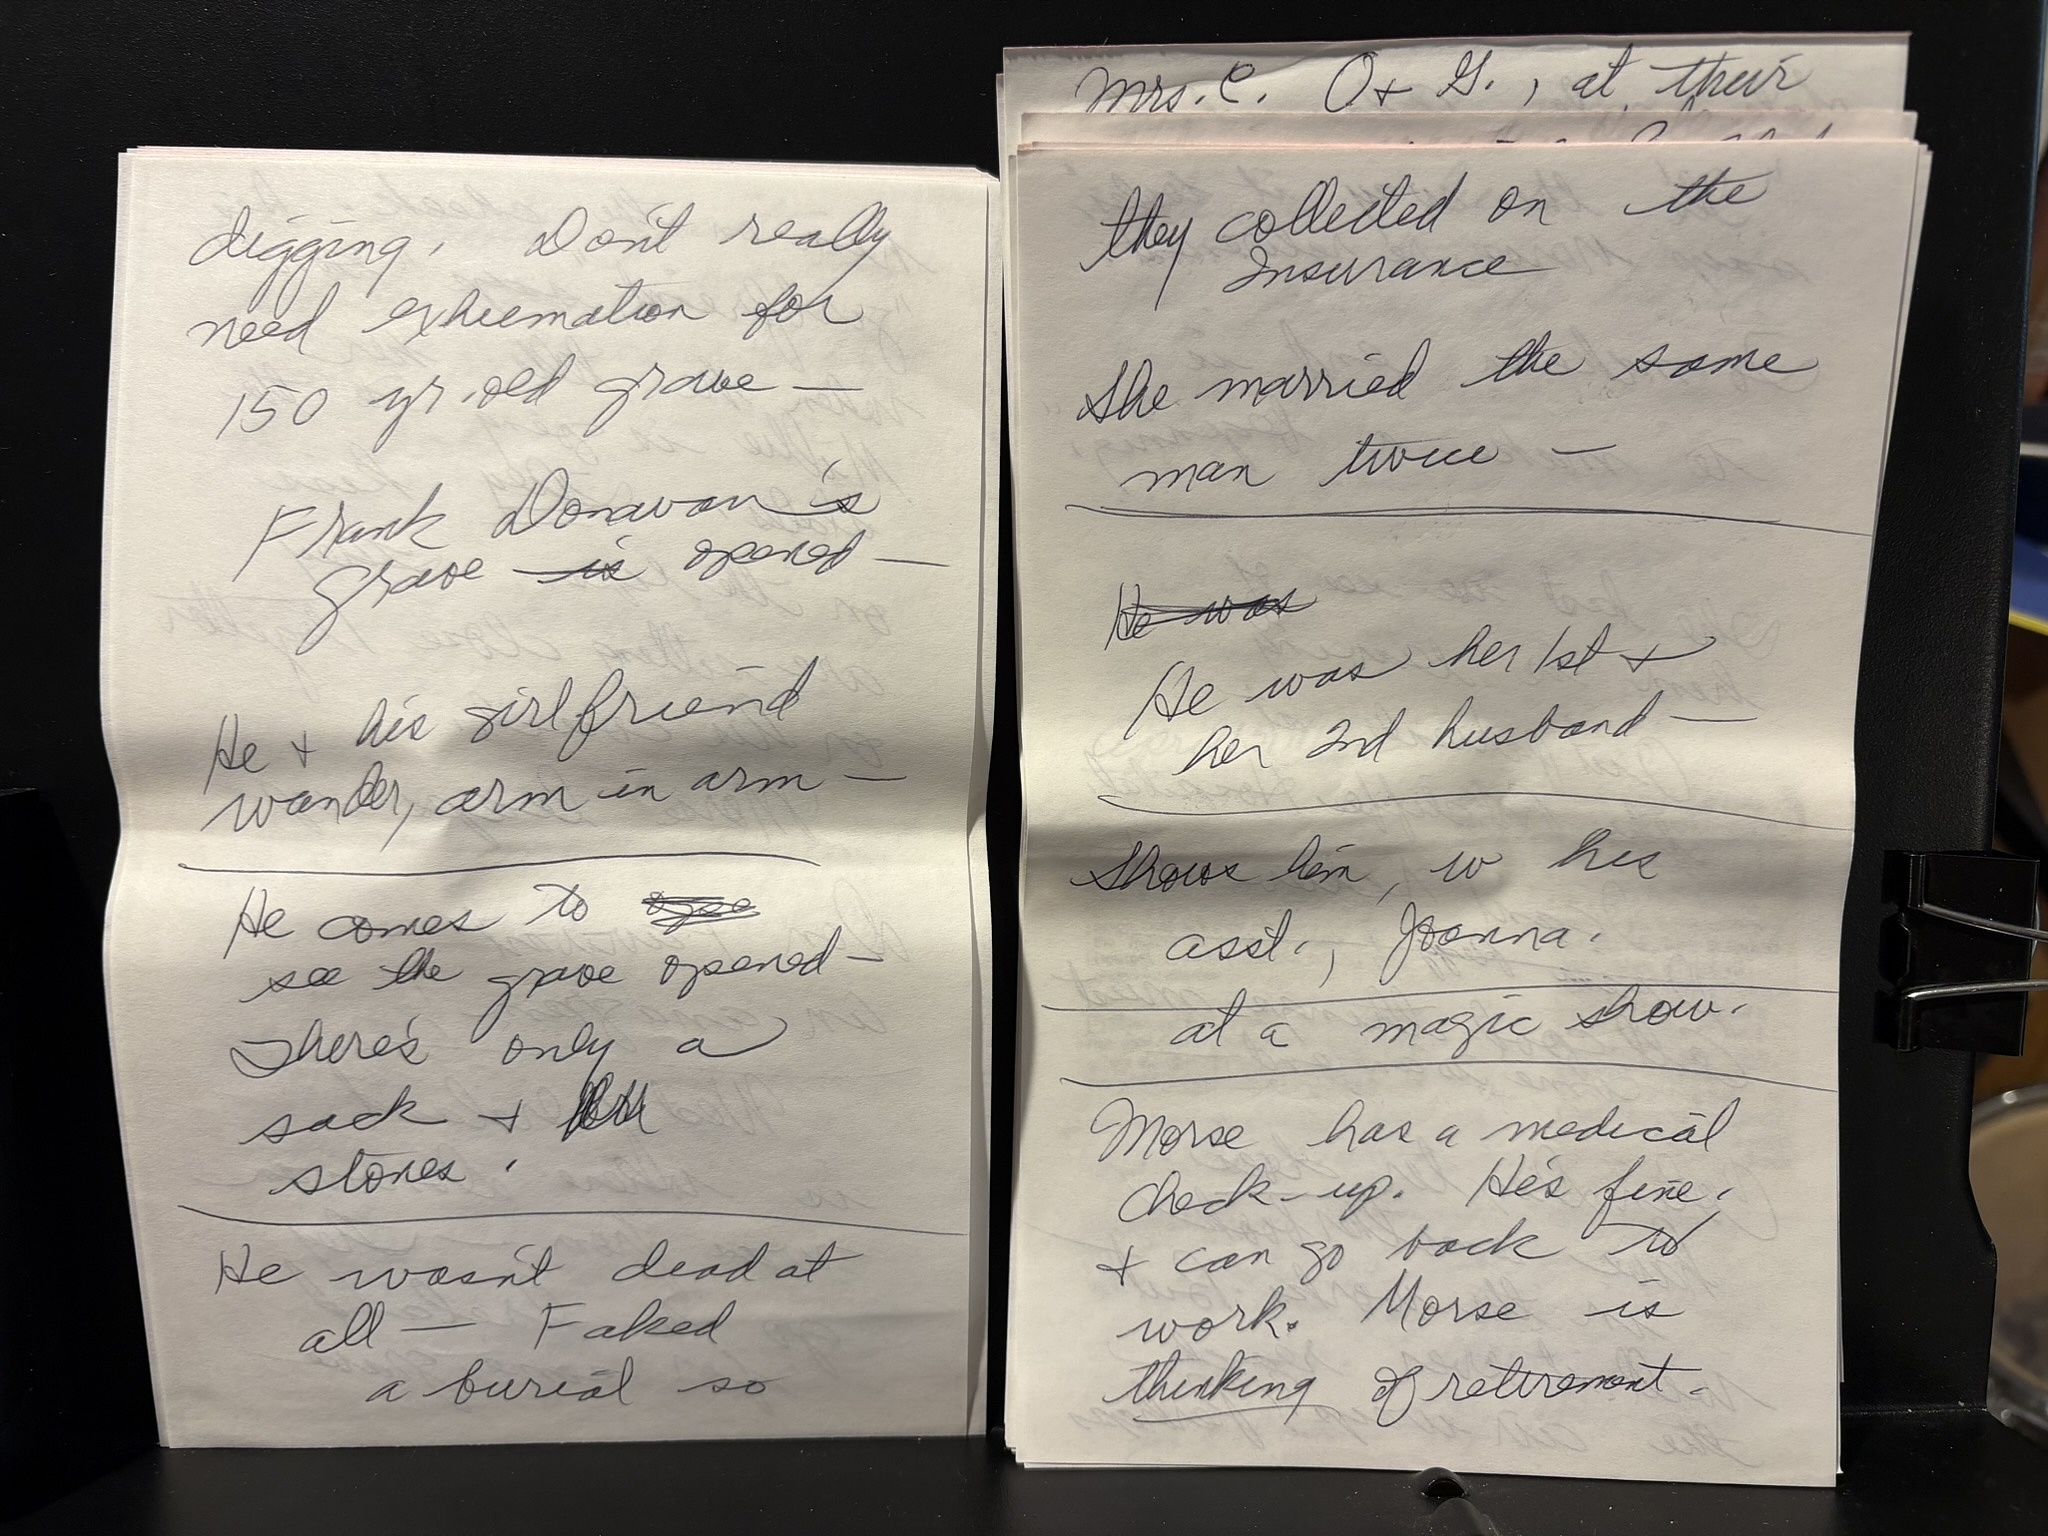 digging. Don't really
need exhumation for
150 yr. old grave —
Frank Donavan is
grave is opened —
He + his girlfriend
wander, arm in arm —
He comes to
see the grave opened —
There's only a
sack +
stones.
He wasn't dead at
all — Faked
a burial so
Mrs. C. O + G., at their
they collected on the
Insurance
She married the same
man twice —
He was
He was her 1st +
her 2nd husband —
Shows him, w his
asst., Joanna.
at a magic show.
Morse has a medical
check-up. He's fine,
+ can go back to
work. Morse is
thinking of retirement.